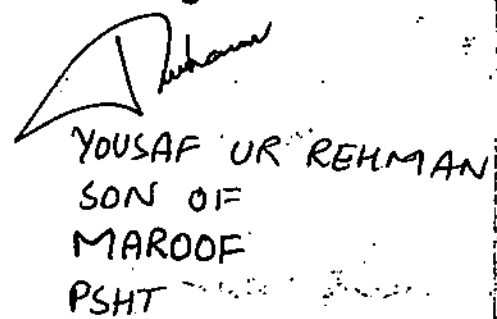 YOUSAF UR REHMAN
SON OF
MAROOF
PSHT